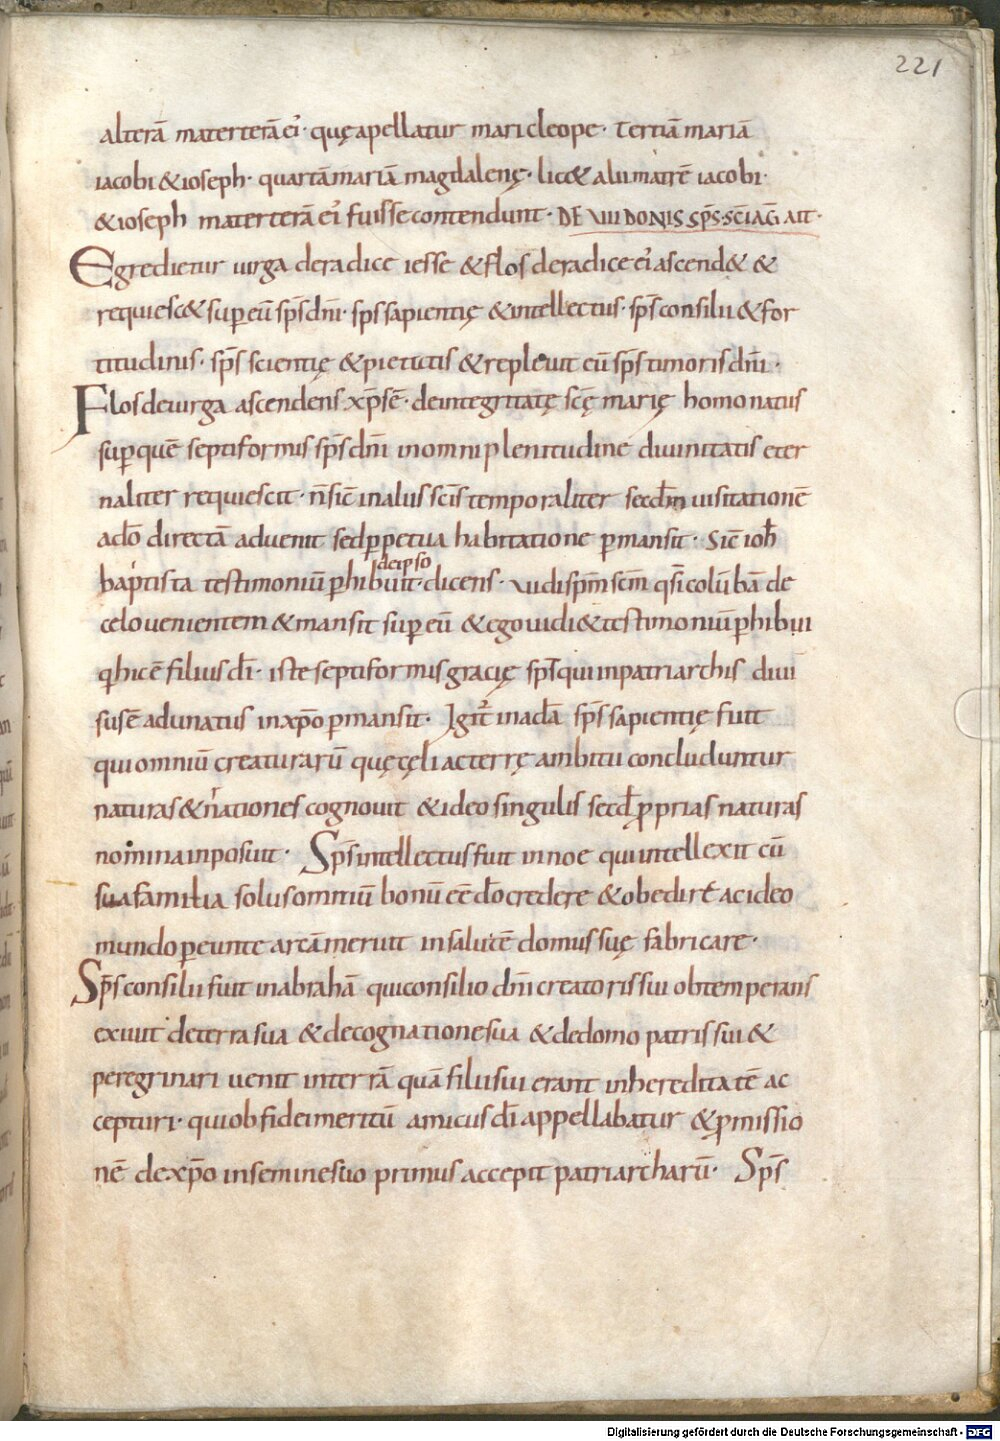 221
alterā materterā ei᾽· quę apellatur mari cleope· Tertiā mariā
iacobi & ioseph· quartā mariā magdalenę· lic& alii matrē iacobi·
& ioseph materterā ei᾽ fuisse contendunt· DE VIII DONIS SP̄S· SC̄I AG̅ AIT·
Egredietur uirga de radice iesse & flos de radice ei᾽ ascend& &
requiesc& sup eū sp̄s dn̄i· sp̄s sapientię & intellectus· sp̄s consilii & for
titudinis· sp̄s scientię & pietatis & repleuit eū sp̄s timoris dn̄i·
Flos de uirga ascendens xp̄s ē· de integritatę sc̄ę marię homo natus
sup quē septiformis sp̄s dn̄i in omni plenitudine diuinitatis eter
naliter requiescit· n̄ sic̄ in aliis sc̄is temporaliter secd̄m uisitationē
a do̅ directā aduenit sed ꝑpetua habitatione ꝑmansit· Sic̄ ioh̄
de ipso
baptista testimoniū ꝑhibuit· dicens· uidi sp̄m sc̄m qsi colūbā de
celo uenientem & mansit sup eū & ego uidi & testimoniū ꝑhibui
q hic ē filius di̅· iste septiformis gracię sp̄s qui in patriarchis diui
sus ē adunatus in xp̄o ꝑmansit· Igit᾽ in adā sp̄s sapientię fuit
qui omniū creaturarū quę cęli ac terrę ambitu concluduntur
naturas & nationes cognouit & ideo singulis secd̄ ꝓprias naturas
nomina inposuit· Sp̄s intellectus fuit in noe qui intellexit cū
sua familia solus omniū bonū ēē do̅ credere & obedire ac ideo
mundo ꝑeunte arcā meruit in salutē domus suę fabricare·
Sp̄s consilii fuit in abrahā qui consilio dn̄i creatoris sui obtemperans
exiuit de terra sua & de cognatione sua & de domo patris sui &
peregrinari uenit in terrā quā filii sui erant in hereditatē ac
cepturi· qui ob fidei meritū amicus di̅ appellabatur & ꝓmissio
nē de xp̄o in semine suo primus accepit patriarcharū· Sp̄s
Digitalisierung gefördert durch die Deutsche Forschungsgemeinschaft - DFG